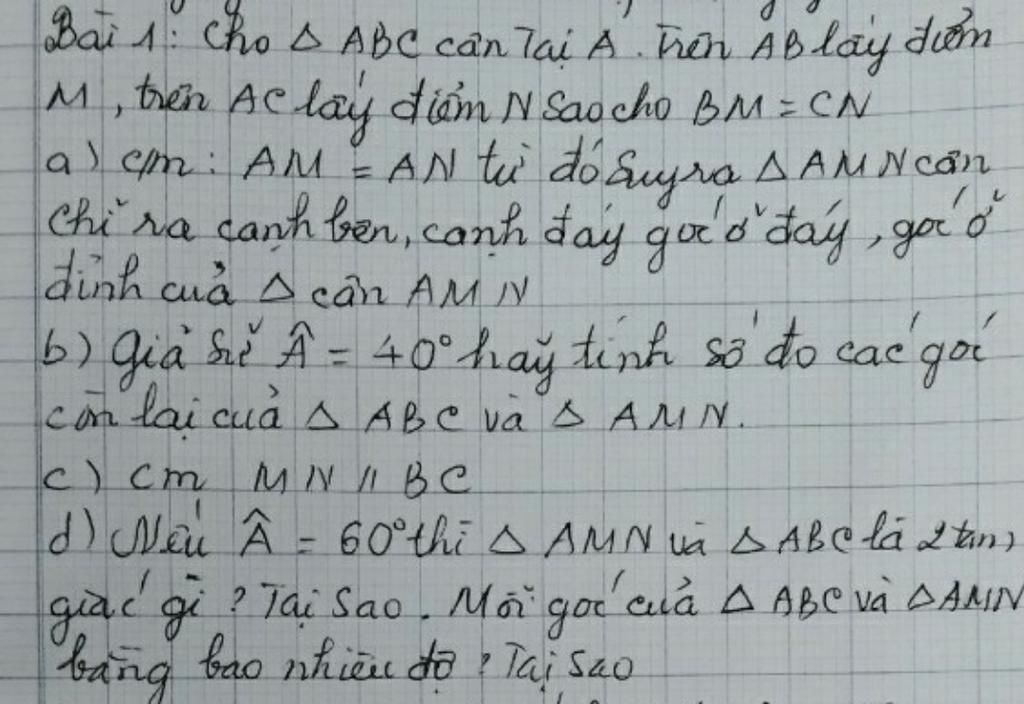 Bài 1: Cho △ ABC cân Tại A. Trên AB lấy điểm
M, trên AC lấy điểm N sao cho BM = CN
a) c/m: AM = AN từ đó suy ra △ AMN cân
chỉ ra cạnh bên, cạnh đáy góc ở đáy, góc ở
đỉnh của △ cân AMN
b) Giả sử Â = 40° hãy tính số đo các góc
còn lại của △ ABC và △ AMN.
c) cm MN // BC
d) Nếu Â = 60° thì △ AMN và △ ABC là 2 tam
giác gì? Tại sao. Mỗi góc của △ ABC và △AMN
bằng bao nhiêu độ? Tại sao